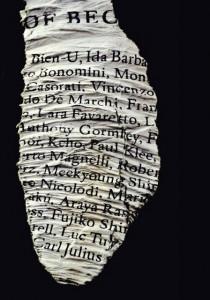 OF BEC
Bien-U, Ida Barba
Bonomini, Mon
Casorati, Vincenzo
De Marchi, Fran
Lara Favaretto,
Anthony Gormley,
Kcho, Paul Klee,
Magnelli, Rober
Meekyoung, Shin
Nicolodi, Mar
Araya Ras
Fujiko Shir
rell, Luc Tuy
Carl Julius